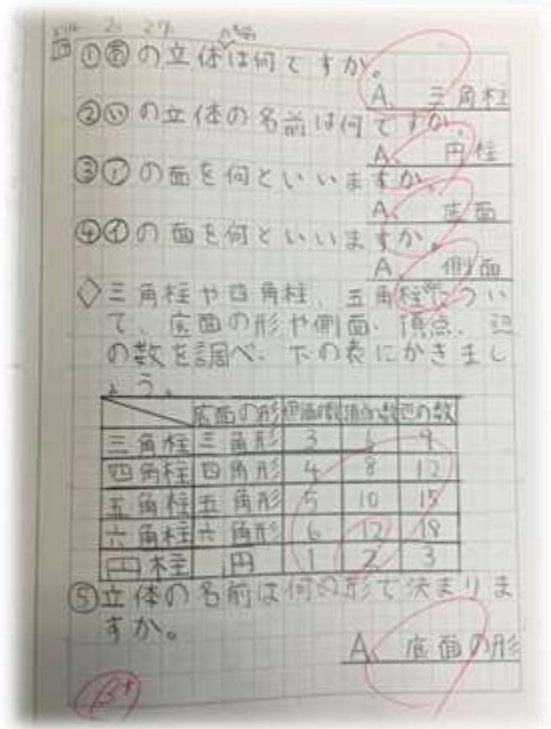 2. 27.
①あの立体は何ですか。
の名前
A、三角柱
②いの立体の名前は何ですか。
A、円柱
③アの面を何といいますか。
A、底面
④イの面を何といいますか。
A、側面
◇三角柱や四角柱、五角柱につい
て、底面の形や側面、頂点、辺
の数を調べ、下の表にかきまし
ょう。
底面の形 側面の数 頂点の数 辺の数
三角柱 三角形 3 6 9
四角柱 四角形 4 8 12
五角柱 五角形 5 10 15
六角柱 六角形 6 12 18
円柱 円 1 2 3
⑤立体の名前は何の形で決まりま
すか。
A、底面の形